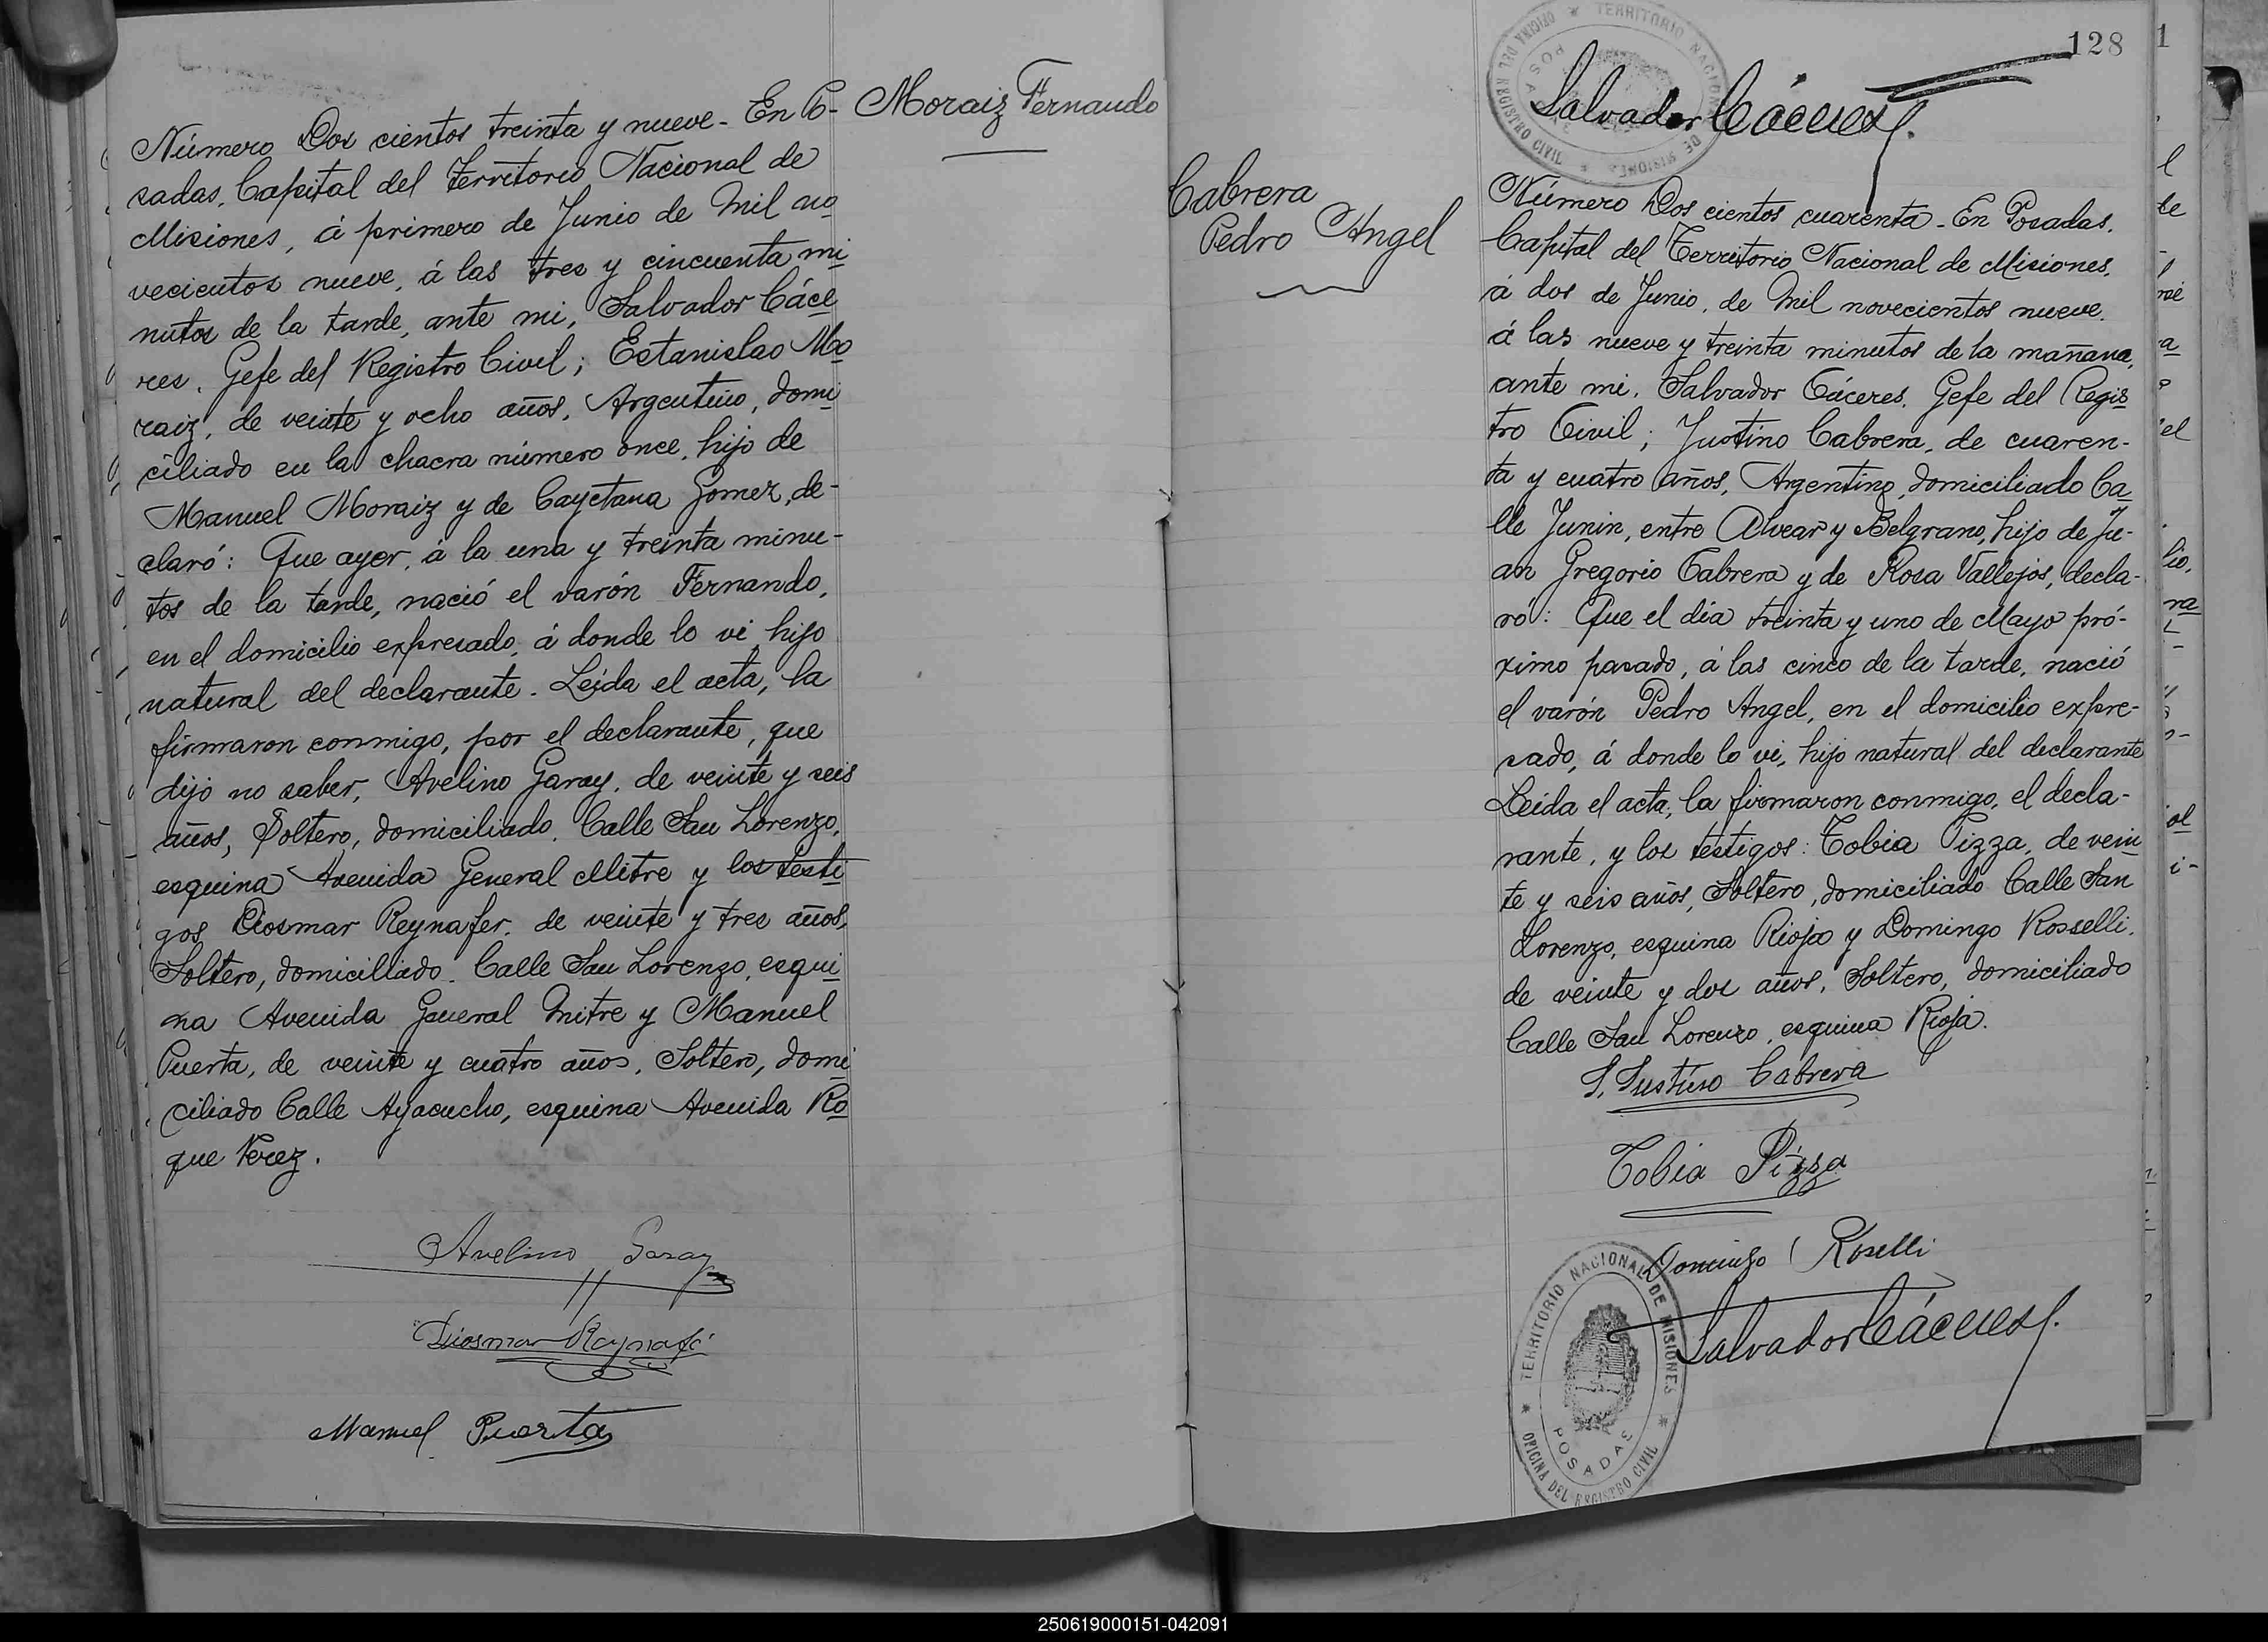 Moraiz Fernando
Número Dos cientos treinta y nueve - En Po-
sadas, Capital del Territorio Nacional de
Misiones, á primero de Junio de Mil no
vecientos nueve, á las tres y cincuenta mi
nutos de la tarde, ante mi, Salvador Cáce
res, Gefe del Registro Civil; Estanislao Mo
raiz, de veinte y ocho años, Argentino, domi
ciliado en la chacra número once, hijo de
Manuel Moraiz y de Cayetana Gomez, de-
claró: Que ayer, á la una y treinta minu-
tos de la tarde, nació el varón Fernando,
en el domicilio expresado, á donde lo vi, hijo
natural del declarante. Leida el acta, la
firmaron conmigo, por el declarante, que
dijo no saber, Avelino Garay, de veinte y seis
años, Soltero, domiciliado, Calle San Lorenzo,
esquina Avenida General Mitre y los testi
gos Diosmar Reynafer, de veinte y tres años,
Soltero, domiciliado. Calle San Lorenzo, esqui
na Avenida General Mitre y Manuel
Puerta, de veinte y cuatro años, Soltero, domi
ciliado Calle Ayacucho, esquina Avenida Ro
que Perez.
Avelino Garay
Diosmar Reynafé
Manuel Puerta
128
TERRITORIO NACIONAL DE MISIONES
OFICINA DEL REGISTRO CIVIL
POSADAS
Salvador Cáceres
Cabrera
Pedro Angel
Número Dos cientos cuarenta - En Posadas,
Capital del Territorio Nacional de Misiones,
á dos de Junio, de Mil novecientos nueve,
á las nueve y treinta minutos de la mañana,
ante mi, Salvador Cáceres, Gefe del Regis
tro Civil; Justino Cabrera, de cuaren-
ta y cuatro años, Argentino, domiciliado Ca
lle Junin, entre Alvear y Belgrano, hijo de Ju-
an Gregorio Cabrera y de Rosa Vallejos, decla-
ró: Que el día treinta y uno de Mayo pró-
ximo pasado, á las cinco de la tarde, nació
el varón Pedro Angel, en el domicilio expre-
sado, á donde lo vi, hijo natural del declarante
Leida el acta, la firmaron conmigo, el decla-
rante, y los testigos: Tobia Pizza, de vein
te y seis años, Soltero, domiciliado Calle San
Lorenzo, esquina Rioja y Domingo Rosselli,
de veinte y dos años, Soltero, domiciliado
Calle San Lorenzo, esquina Rioja.
J. Justino Cabrera
Tobia Pizza
Domingo Roselli
Salvador Cáceres
TERRITORIO NACIONAL DE MISIONES
POSADAS
OFICINA DEL REGISTRO CIVIL
250619000151-042091